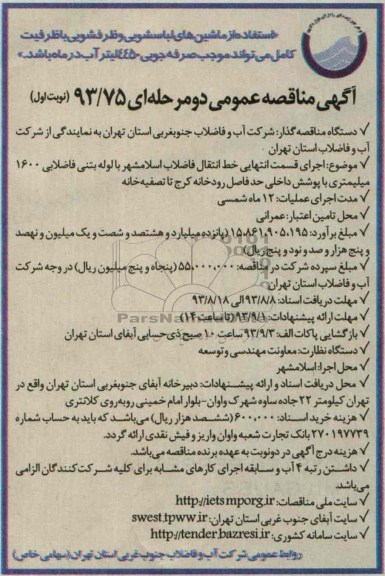 «استفاده از ماشین‌های لباسشویی و ظرفشویی با ظرفیت
کامل می‌تواند موجب صرفه‌جویی ۴۴۵۰ لیتر آب در ماه باشد.»
آگهی مناقصه عمومی دو مرحله‌ای ۹۳/۷۵ (نوبت اول)
✓ دستگاه مناقصه گذار: شرکت آب و فاضلاب جنوبغربی استان تهران به نمایندگی از شرکت
آب و فاضلاب استان تهران
✓ موضوع: اجرای قسمت انتهایی خط انتقال فاضلاب اسلامشهر با لوله بتنی فاضلابی ۱۶۰۰
میلیمتری با پوشش داخلی حدفاصل رودخانه کرج تا تصفیه‌خانه
✓ مدت اجرای عملیات: ۱۲ ماه شمسی
✓ محل تامین اعتبار: عمرانی
✓ مبلغ برآورد: ۱۵،۸۶۱،۹۰۵،۱۹۵ (پانزده میلیارد و هشتصد و شصت و یک میلیون و نهصد
و پنج هزار و صد و نود و پنج ریال)
✓ مبلغ سپرده شرکت در مناقصه: ۵۵،۰۰۰،۰۰۰ (پنجاه و پنج میلیون ریال) در وجه شرکت
آب و فاضلاب استان تهران
✓ مهلت دریافت اسناد: ۹۳/۸/۸ الی ۹۳/۸/۱۸
✓ مهلت ارائه پیشنهادات: ۹۳/۹/۱ (تا ساعت ۱۴)
✓ بازگشایی پاکات الف: ۹۳/۹/۳ ساعت ۱۰ صبح ذی‌حسابی آبفای استان تهران
✓ دستگاه نظارت: معاونت مهندسی و توسعه
✓ محل اجرا: اسلامشهر
✓ محل دریافت اسناد و ارائه پیشنهادات: دبیرخانه آبفای جنوبغربی استان تهران واقع در
تهران کیلومتر ۲۲ جاده ساوه شهرک واوان-بلوار امام خمینی روبه‌روی کلانتری
✓ هزینه خرید اسناد: ۶۰۰،۰۰۰ (ششصد هزار ریال) می‌باشد که باید به حساب شماره
۲۷۰۱۹۷۷۳۹ بانک تجارت شعبه واوان واریز و فیش نقدی ارائه گردد.
✓ هزینه درج آگهی در دو نوبت به عهده برنده مناقصه می‌باشد.
✓ داشتن رتبه ۴ آب و سابقه اجرای کارهای مشابه برای کلیه شرکت‌کنندگان الزامی
می‌باشد.
✓ سایت ملی مناقصات: http://iets.mporg.ir
✓ سایت آبفای جنوب غربی استان تهران: swest.tpww.ir
✓ سایت سامانه کشوری: http://tender.bazresi.ir
روابط عمومی شرکت آب و فاضلاب جنوب غربی استان تهران (سهامی خاص)